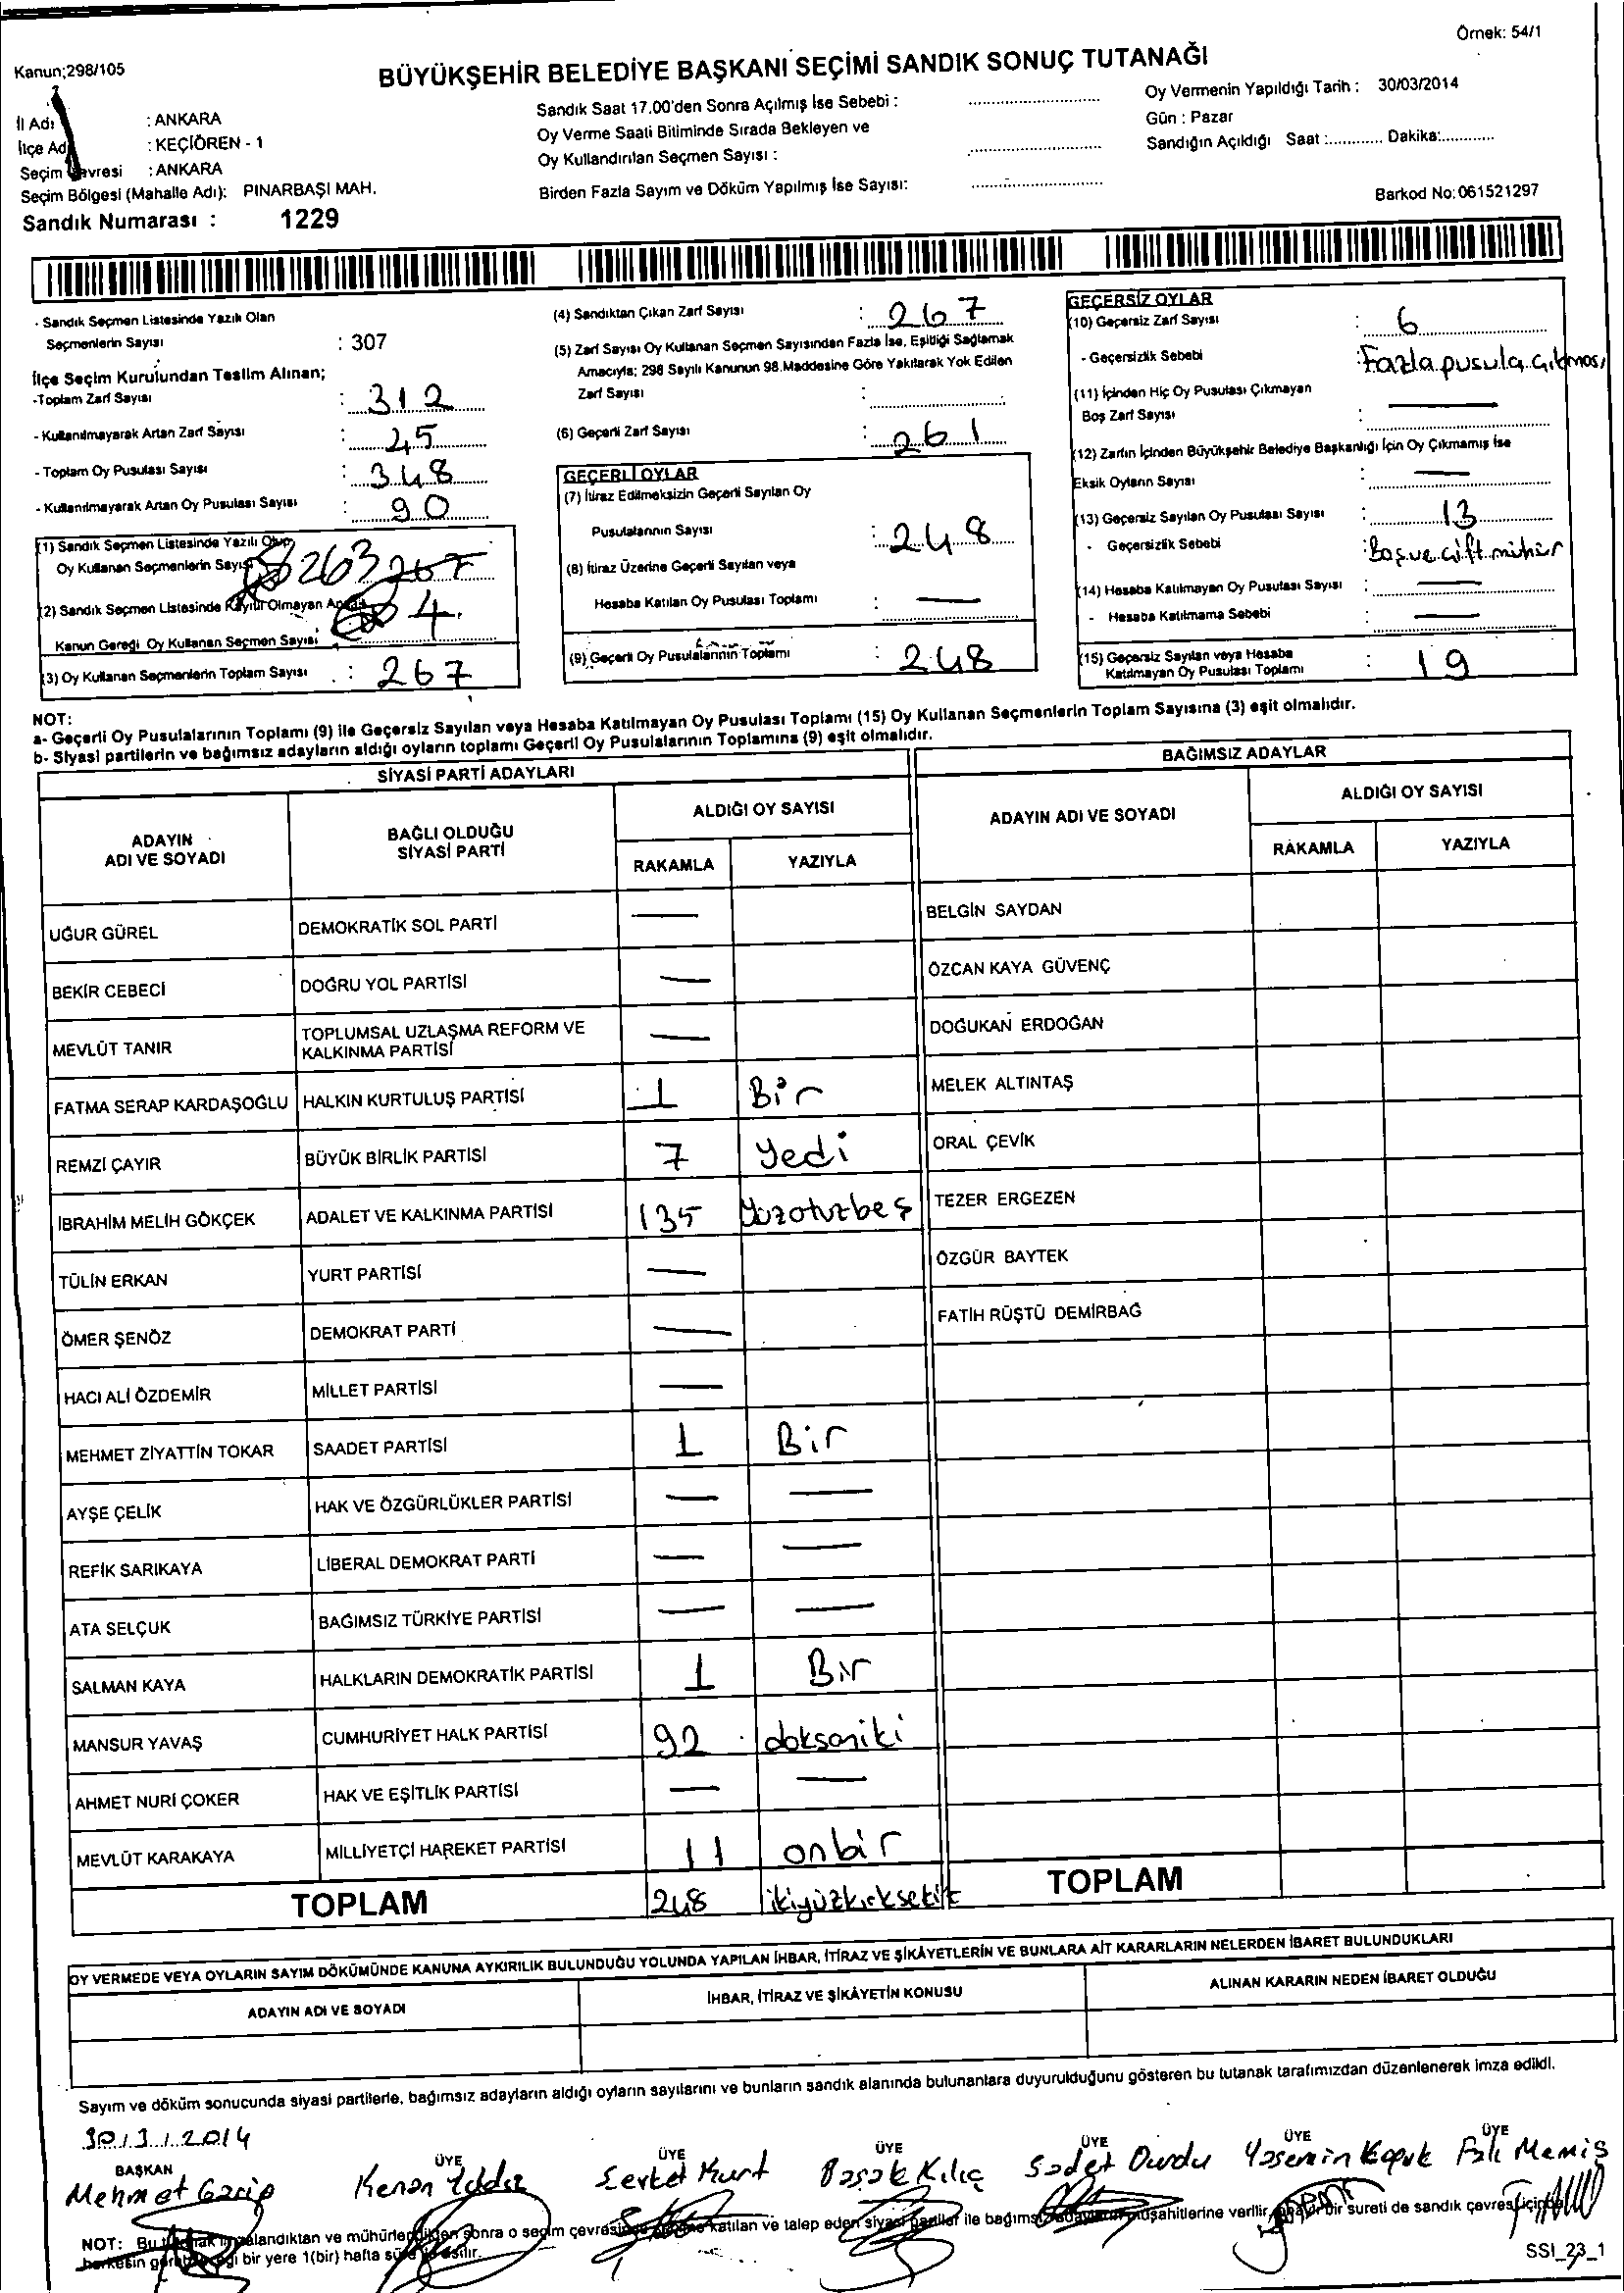 Örnek: 54/1
Kanun;298/105
BÜYÜKŞEHİR BELEDİYE BAŞKANI SEÇİMİ SANDIK SONUÇ TUTANAĞI
İl Adı : ANKARA
İlçe Adı : KEÇİÖREN - 1
Seçim Çevresi : ANKARA
Seçim Bölgesi (Mahalle Adı): PINARBAŞI MAH.
Sandık Numarası : 1229
Sandık Saat 17.00'den Sonra Açılmış İse Sebebi :
Oy Verme Saati Bitiminde Sırada Bekleyen ve
Oy Kullandırılan Seçmen Sayısı :
Birden Fazla Sayım ve Döküm Yapılmış İse Sayısı:
Oy Vermenin Yapıldığı Tarih : 30/03/2014
Gün : Pazar
Sandığın Açıldığı Saat :............ Dakika:............
Barkod No:061521297
- Sandık Seçmen Listesinde Yazılı Olan
Seçmenlerin Sayısı : 307
İlçe Seçim Kurulundan Teslim Alınan;
-Toplam Zarf Sayısı : 312
- Kullanılmayarak Artan Zarf Sayısı : 45
- Toplam Oy Pusulası Sayısı : 348
- Kullanılmayarak Artan Oy Pusulası Sayısı : 90
(1) Sandık Seçmen Listesinde Yazılı Olup
Oy Kullanan Seçmenlerin Sayısı 263 267
(2) Sandık Seçmen Listesinde Kayıtlı Olmayan Ancak
Kanun Gereği Oy Kullanan Seçmen Sayısı 4
(3) Oy Kullanan Seçmenlerin Toplam Sayısı : 267
(4) Sandıktan Çıkan Zarf Sayısı : 267
(5) Zarf Sayısı Oy Kullanan Seçmen Sayısından Fazla İse, Eşitliği Sağlamak
Amacıyla; 298 Sayılı Kanunun 98.Maddesine Göre Yakılarak Yok Edilen
Zarf Sayısı :
(6) Geçerli Zarf Sayısı : 261
GEÇERLİ OYLAR
(7) İtiraz Edilmeksizin Geçerli Sayılan Oy
Pusulalarının Sayısı : 248
(8) İtiraz Üzerine Geçerli Sayılan veya
Hesaba Katılan Oy Pusulası Toplamı : —
(9) Geçerli Oy Pusulalarının Toplamı : 248
GEÇERSİZ OYLAR
(10) Geçersiz Zarf Sayısı : 6
- Geçersizlik Sebebi : Fazla pusula çıkması
(11) İçinden Hiç Oy Pusulası Çıkmayan
Boş Zarf Sayısı : —
(12) Zarfın İçinden Büyükşehir Belediye Başkanlığı İçin Oy Çıkmamış İse
Eksik Oyların Sayısı : —
(13) Geçersiz Sayılan Oy Pusulası Sayısı : 13
- Geçersizlik Sebebi : Boş ve çift mühür
(14) Hesaba Katılmayan Oy Pusulası Sayısı : —
- Hesaba Katılmama Sebebi : —
(15) Geçersiz Sayılan veya Hesaba
Katılmayan Oy Pusulası Toplamı : 19
NOT:
a- Geçerli Oy Pusulalarının Toplamı (9) ile Geçersiz Sayılan veya Hesaba Katılmayan Oy Pusulası Toplamı (15) Oy Kullanan Seçmenlerin Toplam Sayısına (3) eşit olmalıdır.
b- Siyasi partilerin ve bağımsız adayların aldığı oyların toplamı Geçerli Oy Pusulalarının Toplamına (9) eşit olmalıdır.
SİYASİ PARTİ ADAYLARI
ADAYIN ADI VE SOYADI BAĞLI OLDUĞU SİYASİ PARTİ ALDIĞI OY SAYISI
RAKAMLA YAZIYLA
UĞUR GÜREL DEMOKRATİK SOL PARTİ —
BEKİR CEBECİ DOĞRU YOL PARTİSİ —
MEVLÜT TANIR TOPLUMSAL UZLAŞMA REFORM VE KALKINMA PARTİSİ —
FATMA SERAP KARDAŞOĞLU HALKIN KURTULUŞ PARTİSİ 1 Bir
REMZİ ÇAYIR BÜYÜK BİRLİK PARTİSİ 7 Yedi
İBRAHİM MELİH GÖKÇEK ADALET VE KALKINMA PARTİSİ 135 Yüzotuzbeş
TÜLİN ERKAN YURT PARTİSİ —
ÖMER ŞENÖZ DEMOKRAT PARTİ —
HACI ALİ ÖZDEMİR MİLLET PARTİSİ —
MEHMET ZİYATTİN TOKAR SAADET PARTİSİ 1 Bir
AYŞE ÇELİK HAK VE ÖZGÜRLÜKLER PARTİSİ — —
REFİK SARIKAYA LİBERAL DEMOKRAT PARTİ — —
ATA SELÇUK BAĞIMSIZ TÜRKİYE PARTİSİ — —
SALMAN KAYA HALKLARIN DEMOKRATİK PARTİSİ 1 Bir
MANSUR YAVAŞ CUMHURİYET HALK PARTİSİ 92 doksaniki
AHMET NURİ ÇOKER HAK VE EŞİTLİK PARTİSİ — —
MEVLÜT KARAKAYA MİLLİYETÇİ HAREKET PARTİSİ 11 onbir
TOPLAM 248 ikiyüzkırksekiz
BAĞIMSIZ ADAYLAR
ADAYIN ADI VE SOYADI ALDIĞI OY SAYISI
RAKAMLA YAZIYLA
BELGİN SAYDAN
ÖZCAN KAYA GÜVENÇ
DOĞUKAN ERDOĞAN
MELEK ALTINTAŞ
ORAL ÇEVİK
TEZER ERGEZEN
ÖZGÜR BAYTEK
FATİH RÜŞTÜ DEMİRBAĞ
TOPLAM
OY VERMEDE VEYA OYLARIN SAYIM DÖKÜMÜNDE KANUNA AYKIRILIK BULUNDUĞU YOLUNDA YAPILAN İHBAR, İTİRAZ VE ŞİKÂYETLERİN VE BUNLARA AİT KARARLARIN NELERDEN İBARET BULUNDUKLARI
ADAYIN ADI VE SOYADI İHBAR, İTİRAZ VE ŞİKÂYETİN KONUSU ALINAN KARARIN NEDEN İBARET OLDUĞU
Sayım ve döküm sonucunda siyasi partilerle, bağımsız adayların aldığı oyların sayılarını ve bunların sandık alanında bulunanlara duyurulduğunu gösteren bu tutanak tarafımızdan düzenlenerek imza edildi.
30/3/2014
BAŞKAN ÜYE ÜYE ÜYE ÜYE ÜYE ÜYE
Mehmet Garip Kenan Yıldız Şevket Kurt Başak Kılıç Sadet Durdu Yasemin Memiş
NOT: Bu tutanak imzalandıktan ve mühürlendikten sonra o seçim çevresinde seçime katılan ve talep eden siyasi partiler ile bağımsız adayların müşahitlerine verilir, onaylı bir sureti de sandık çevresi içinde
herkesin görebileceği bir yere 1(bir) hafta süre ile asılır.
SSI_23_1